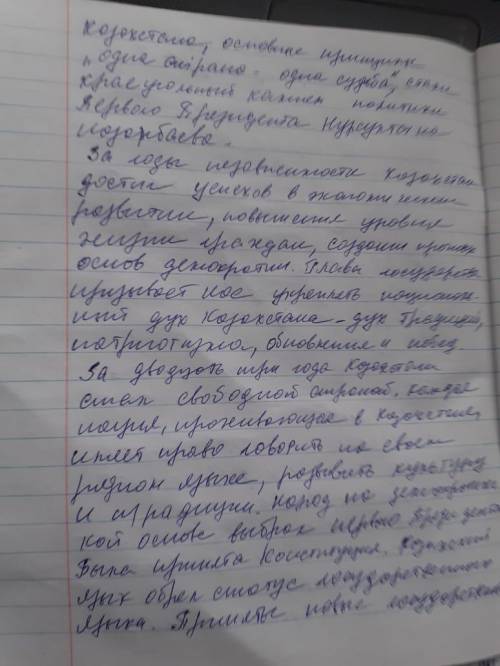 Казахстана, основные принципы
„одна страна - одна судьба", стали
краеугольным камнем политики
Первого Президента Нурсултана
Назарбаева.
За годы независимости Казахстан
достиг успехов в экономическом
развитии, повышение уровня
жизни граждан, создании прочных
основ демократии. Глава государства
призывает нас укреплять национальный
ный дух Казахстана - дух традиций,
патриотизма, обновления и побед.
За двадцать три года Казахстан
стал свободной страной. Каждая
нация, проживающая в Казахстане,
имеет право говорить на своем
родном языке, развивать культуру
и традиции. Народ на демократичес
кой основе выбрал первого Президента
Была принята Конституция. Казахский
язык обрел статус государственного
языка. Приняты новые государствен